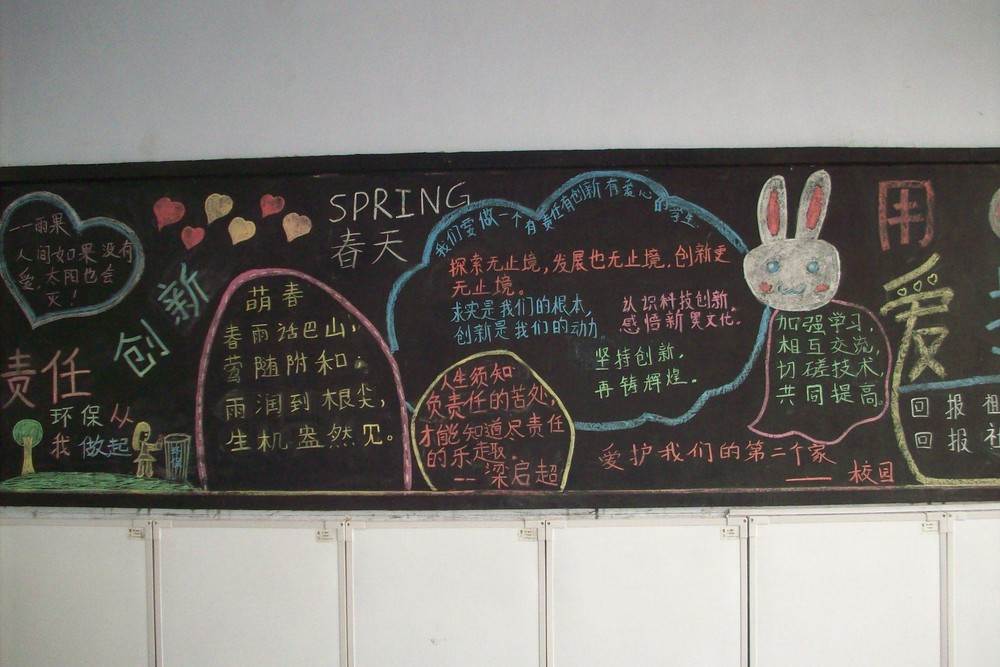 一雨果
人间如果没有
爱,太阳也会
灭!
创新
责任
环保从
我做起
环保
SPRING
春天
萌春
春雨话巴山,
莺随附和;
雨润到根尖,
生机盎然见。
我们要做一个有责任有创新有爱心的学生
探索无止境,发展也无止境.创新更
无止境。
求实是我们的根本,
创新是我们的动力
认识科技创新.
感悟新异文化。
坚持创新.
再铸辉煌。
人生须知
负责任的苦处,
才能知道尽责任
的乐趣.
--梁启超
加强学习,
相互交流,
切磋技术,
共同提高
爱护我们的第二个家
——校园
用
爱
回报祖
回报社